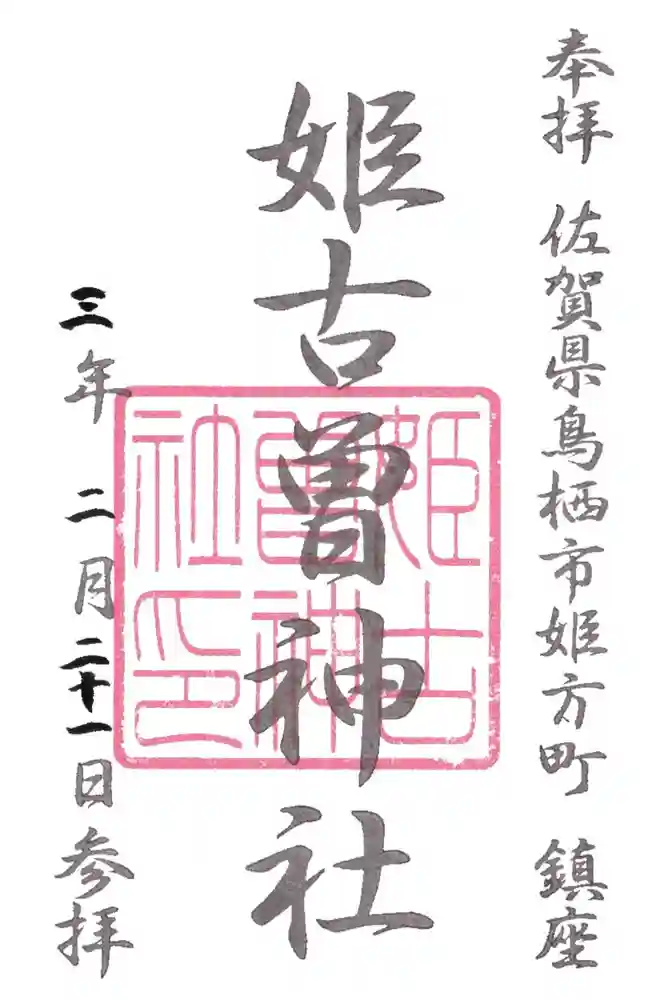 奉拝 佐賀県鳥栖市姫方町 鎮座
姫古曽神社
姫古曽神社印
三年 二月二十一日参拝